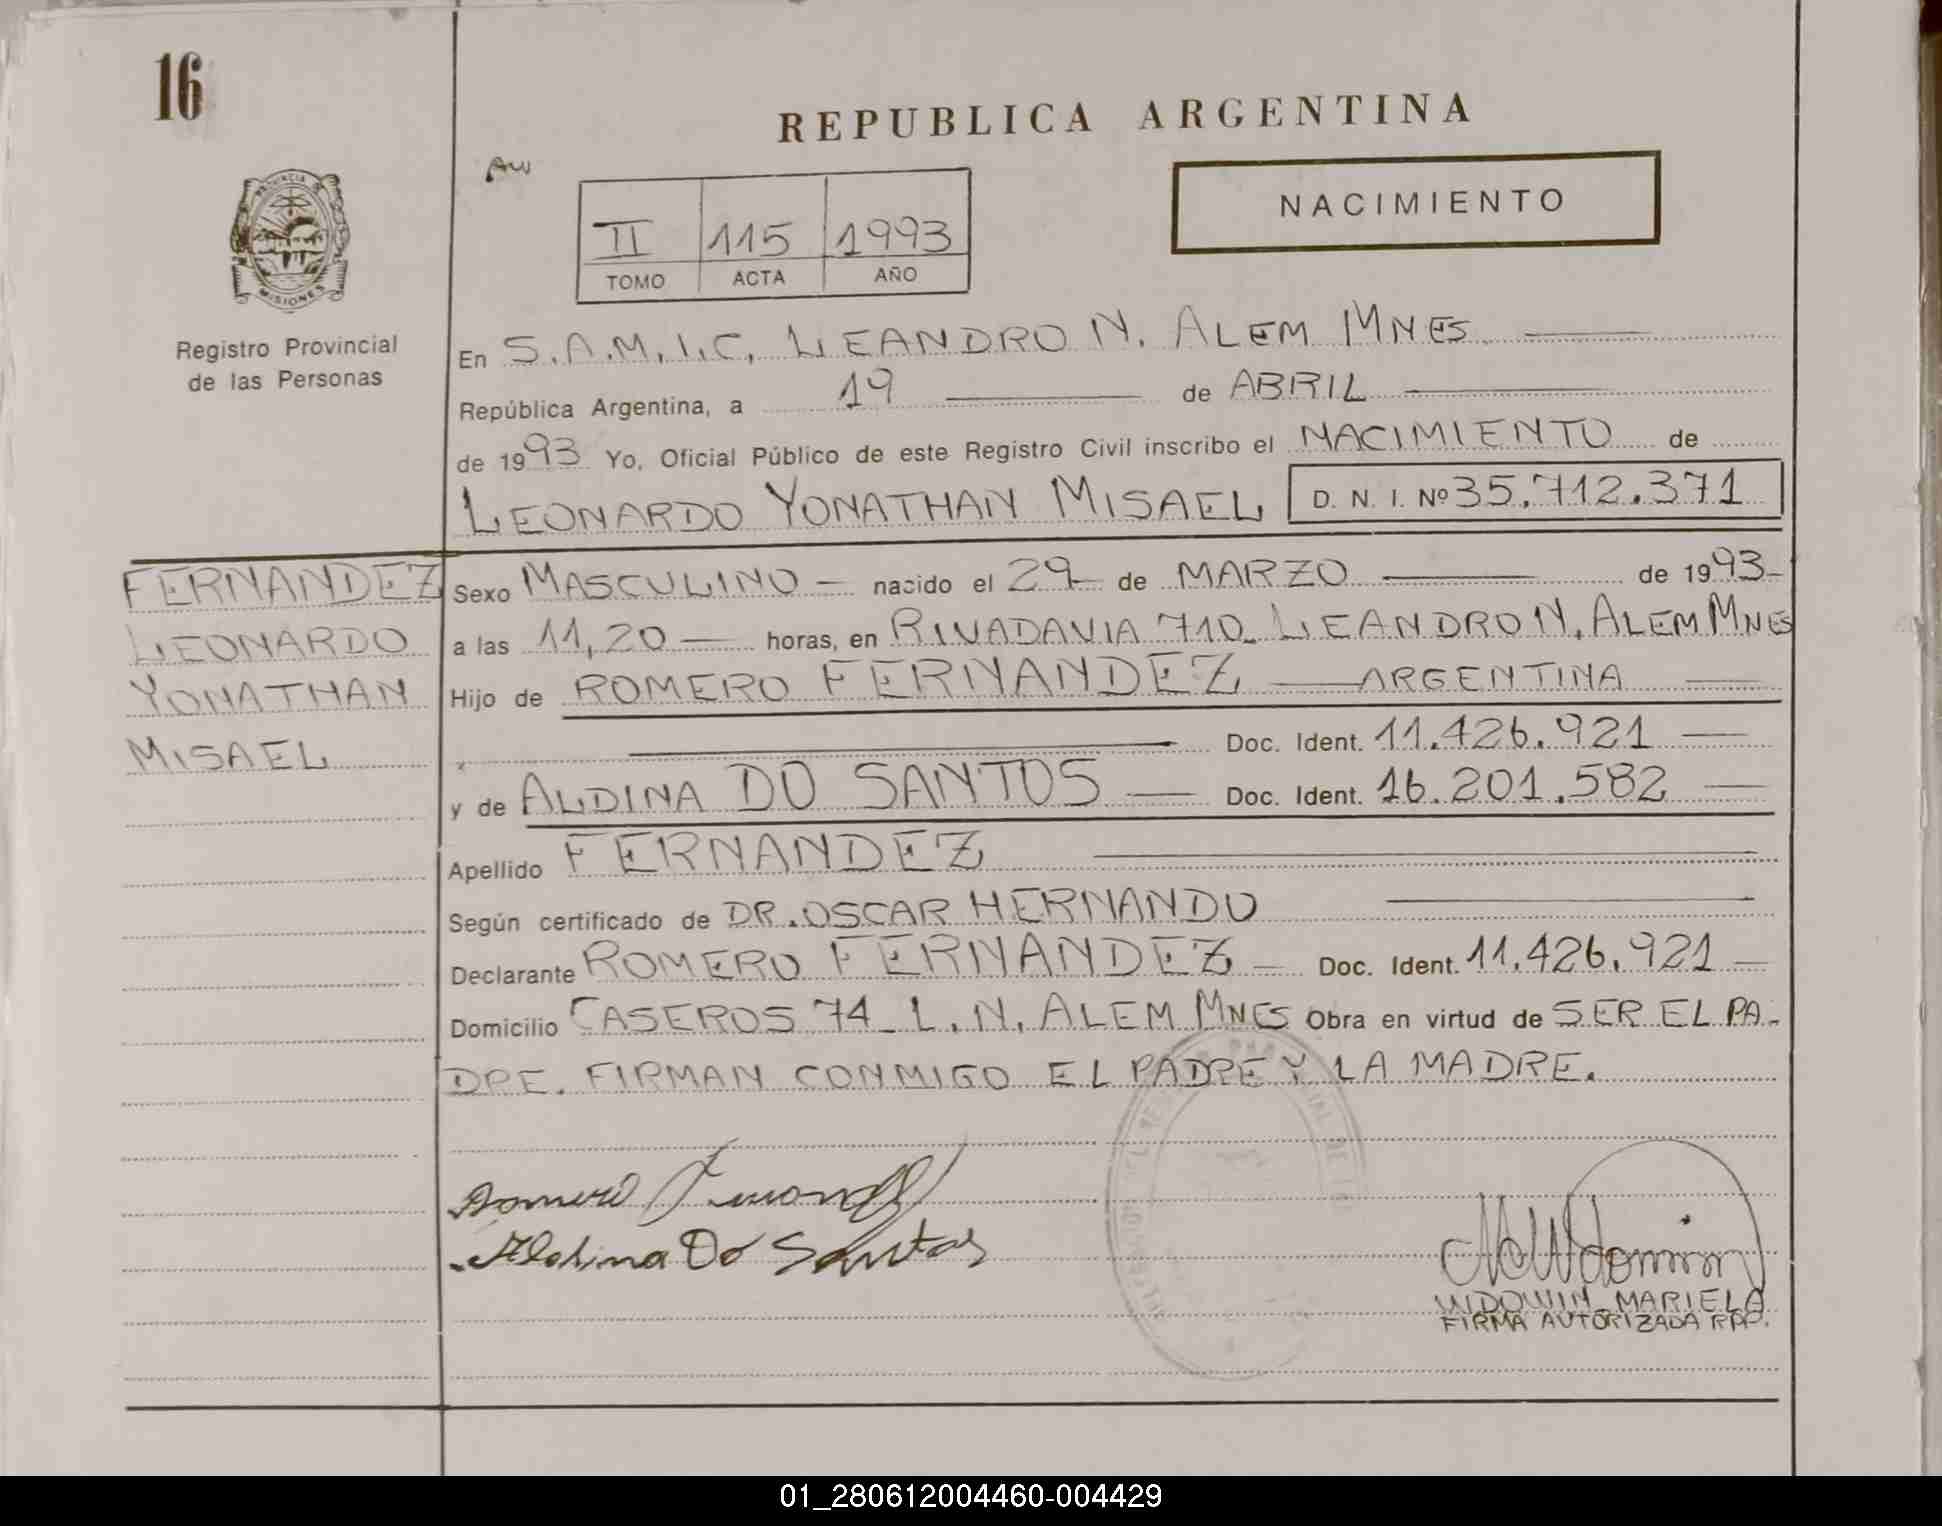 16
REPUBLICA ARGENTINA
NACIMIENTO
II 115 1993
TOMO ACTA AÑO
PROVINCIA DE
MISIONES
Registro Provincial
de las Personas
En S.A.M.I.C. LEANDRO N. ALEM MNES.
República Argentina, a 19 de ABRIL
de 1993 Yo, Oficial Público de este Registro Civil inscribo el NACIMIENTO de
LEONARDO YONATHAN MISAEL D. N. I. Nº 35.712.371
FERNANDEZ
LEONARDO
YONATHAN
MISAEL
Sexo MASCULINO — nacido el 29 de MARZO — de 1993-
a las 11,20 — horas, en RIVADAVIA 710_ LEANDRO N. ALEM MNES
Hijo de ROMERO FERNANDEZ — ARGENTINA —
Doc. Ident. 11.426.921 —
y de ALDINA DO SANTOS — Doc. Ident. 16.201.582 —
Apellido FERNANDEZ
Según certificado de DR. OSCAR HERNANDO
Declarante ROMERO FERNANDEZ — Doc. Ident. 11.426.921 —
Domicilio CASEROS 74_ L. N. ALEM MNES Obra en virtud de SER EL PA-
DRE. FIRMAN CONMIGO EL PADRE Y LA MADRE.
Romero Fernandez
Aldina Do Santos
WDOWIN MARIELA
FIRMA AUTORIZADA RPP.
01_280612004460-004429